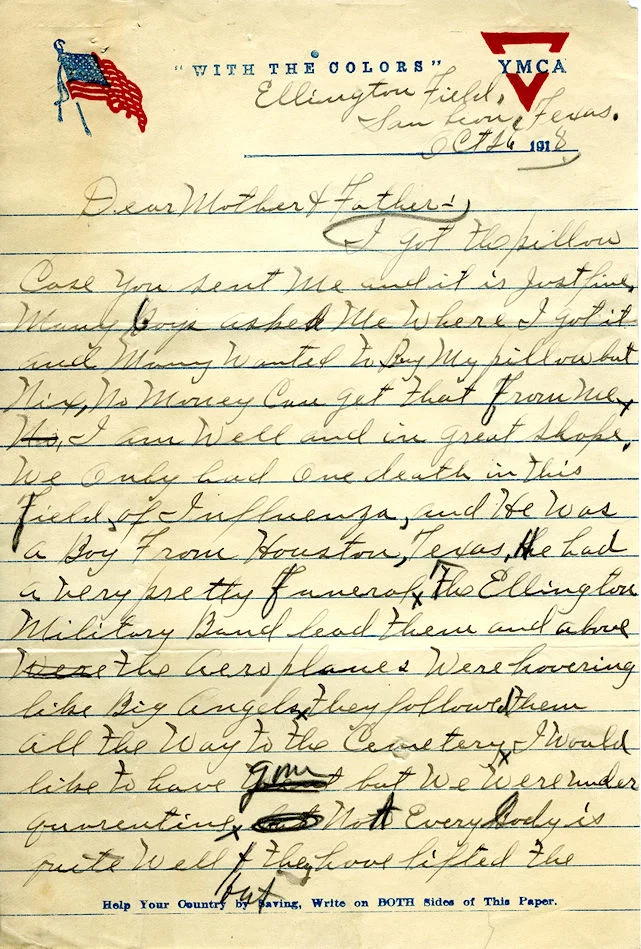 "WITH THE COLORS" YMCA
Ellington Field,
San Leon, Texas.
Oct 26 1918
Dear Mother & Father:-
I got the pillow
Case You sent Me and it is Just fine,
Many Boys asked Me Where I got it
and Many Wanted to Buy My pillow but
Nix, No Money Can get that From Me x
No, I am Well and in great Shape,
We only had one death in this
Field, of Influenza, and He Was
a Boy From Houston, Texas, He had
a very pretty funeral, x The Ellington
Military Band lead them and above
Were the aeroplanes Were hovering
like Big Angels, x they followed them
all the Way to the Cemetery, x I Would
like to have gone but We Were under
quarentine, x but Not Every Body is
quite Well & they have lifted the
but
Help Your Country by Saving, Write on BOTH Sides of This Paper.